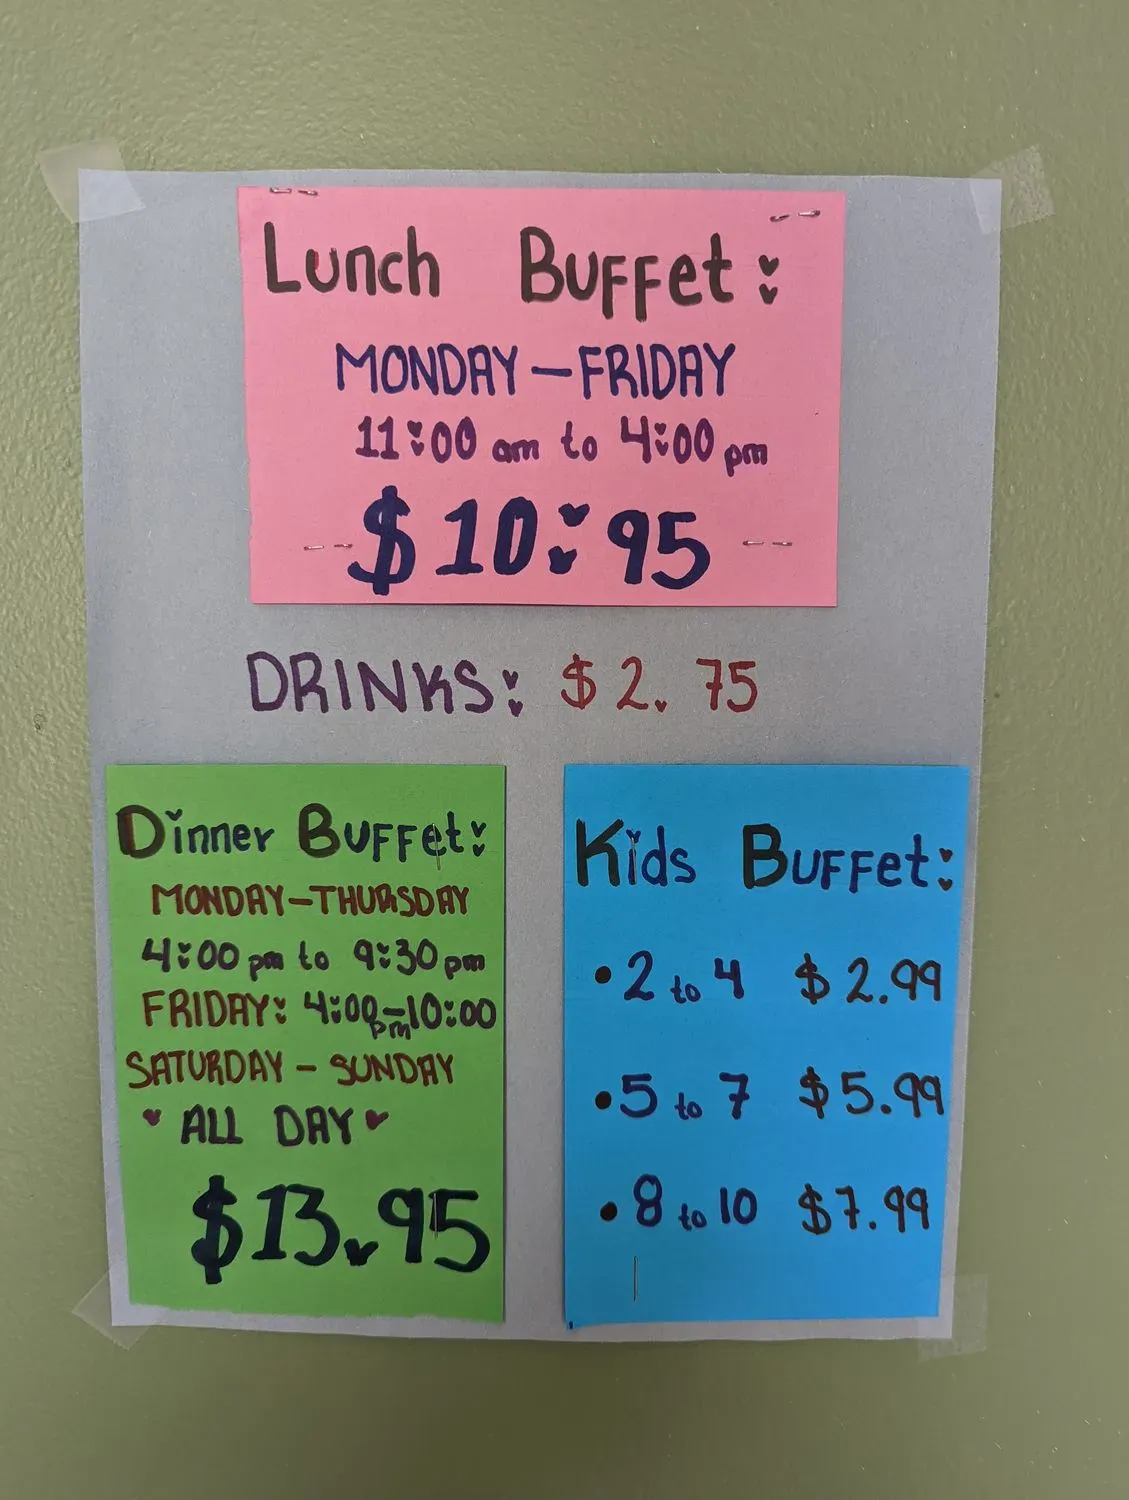 Lunch Buffet:
MONDAY – FRIDAY
11:00 am to 4:00 pm
$10.95
DRINKS: $2.75
Dinner Buffet:
MONDAY – THURSDAY
4:00 pm to 9:30 pm
FRIDAY: 4:00 pm – 10:00
SATURDAY – SUNDAY
♥ ALL DAY ♥
$13.95
Kids Buffet:
• 2 to 4 $2.99
• 5 to 7 $5.99
• 8 to 10 $7.99